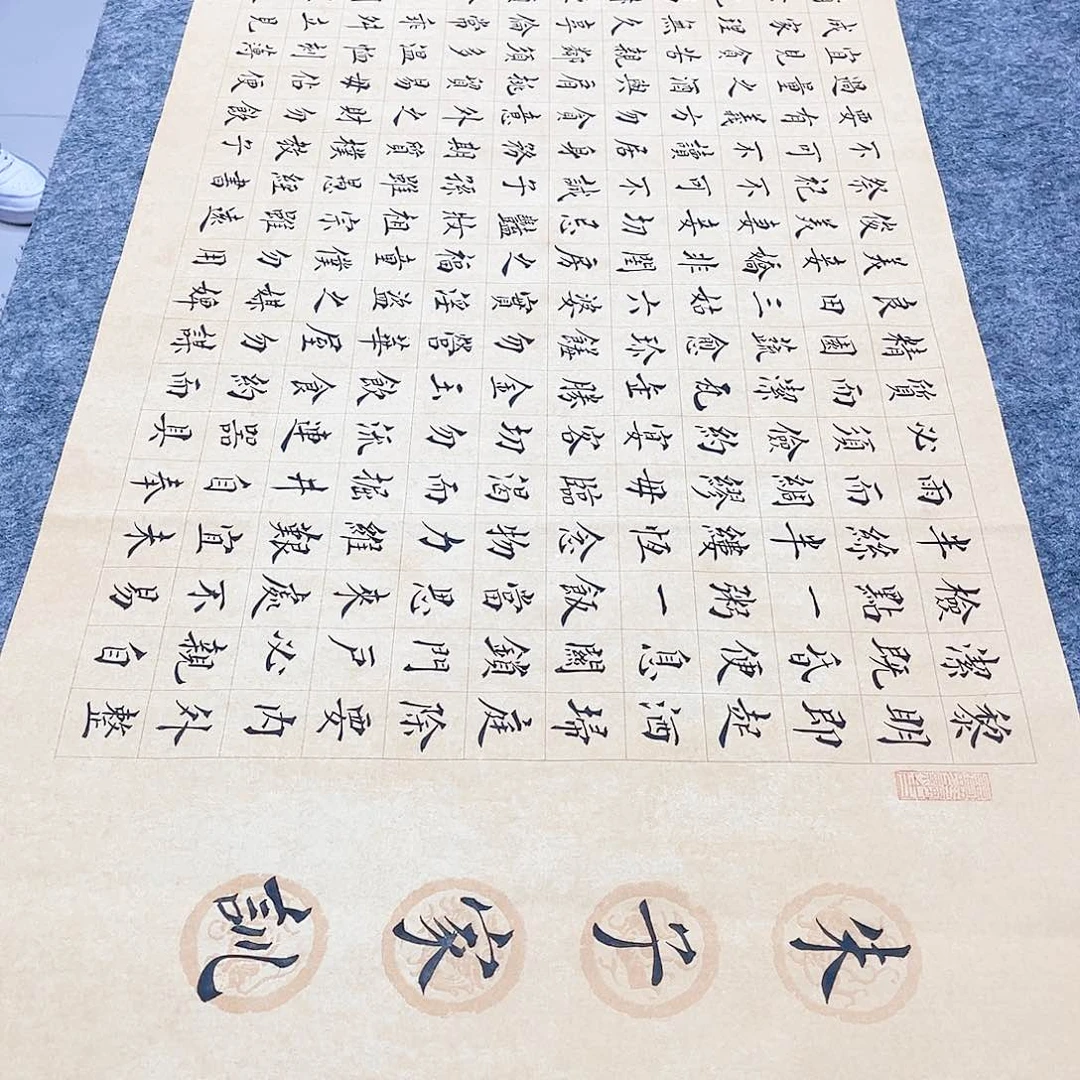 朱子家訓
黎明即起洒掃庭除要內外整
潔既昏便息關鎖門戶必親自
檢點一粥一飯當思來處不易
半絲半縷恆念物力維艱宜未
雨而綢繆毋臨渴而掘井自奉
必須儉約宴客切勿流連器具
質而潔瓦缶勝金玉飲食約而
精園蔬愈珍饈勿營華屋勿謀
良田三姑六婆實淫盜之媒婢
美妾嬌非閨房之福童僕勿用
俊美妻妾切忌豔妝祖宗雖遠
祭祀不可不誠子孫雖愚經書
不可不讀居身務期質樸教子
要有義方勿貪意外之財勿飲
過量之酒與肩挑貿易毋佔便
宜見貧苦親鄰須多溫恤刻薄
成家理無久享倫常乖舛立見